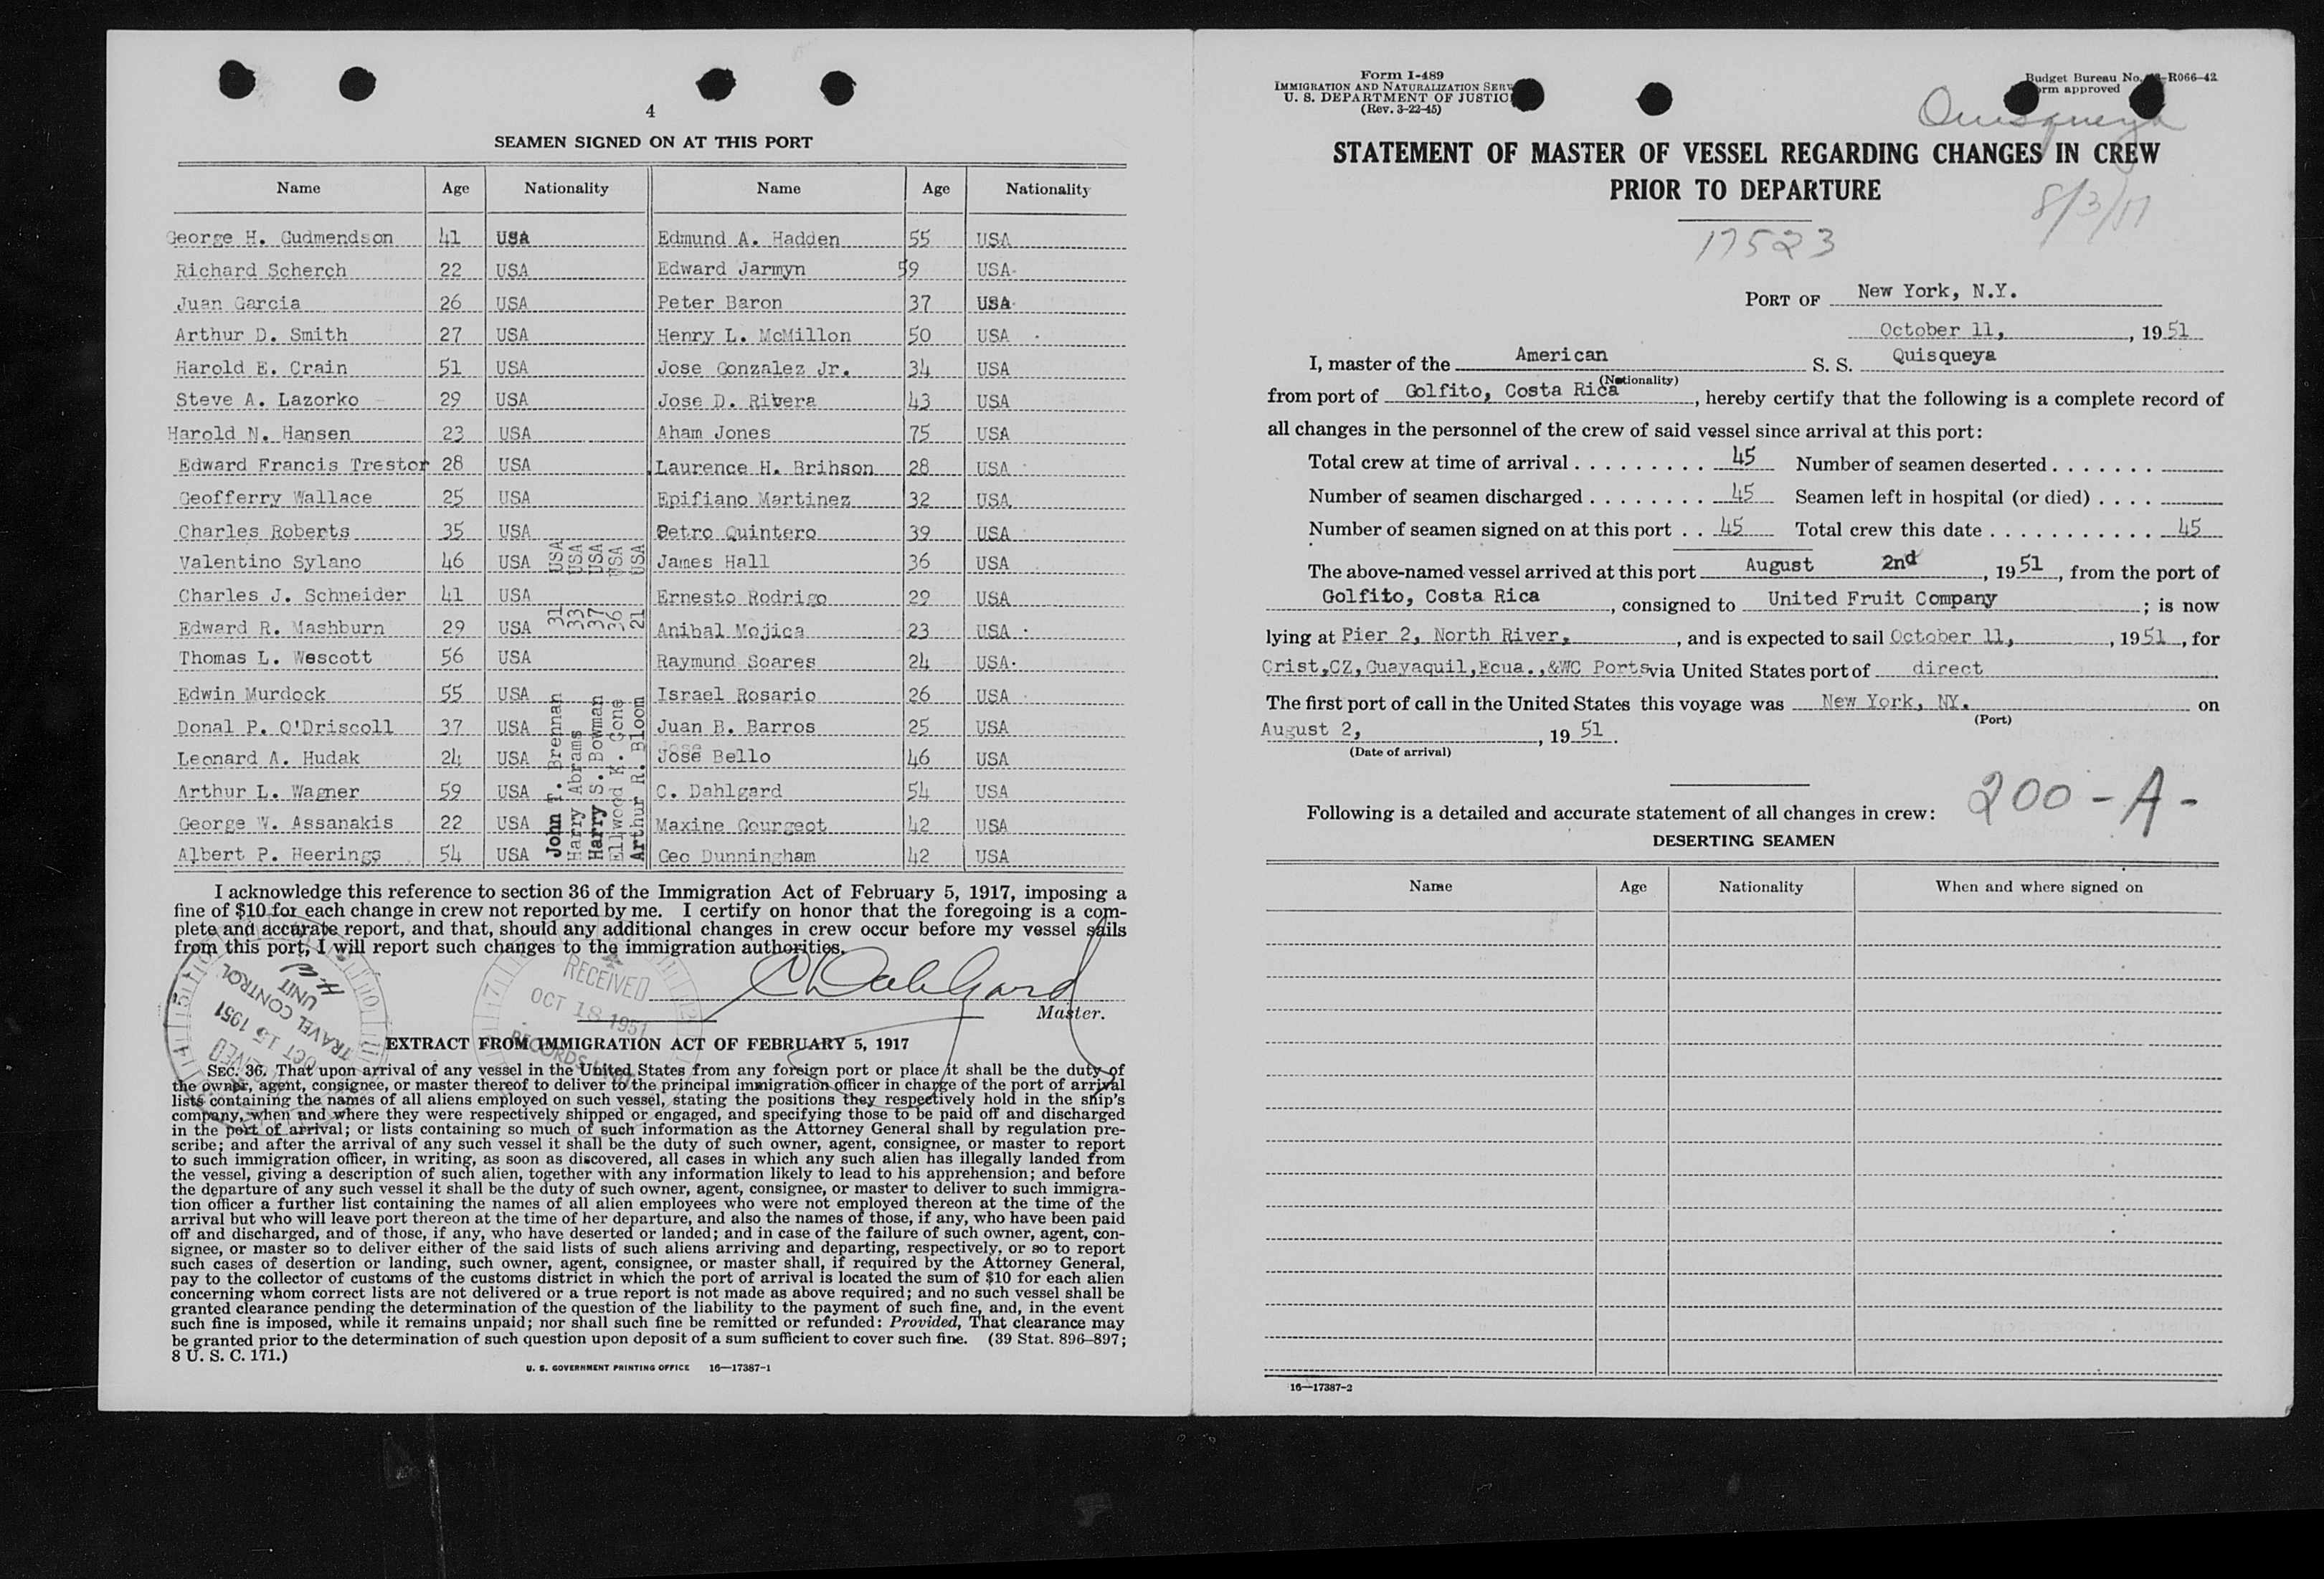 4
SEAMEN SIGNED ON AT THIS PORT
Name Age Nationality Name Age Nationality
George H. Gudmendson 41 USA Edmund A. Hadden 55 USA
Richard Scherch 22 USA Edward Jarmyn 59 USA
Juan Garcia 26 USA Peter Baron 37 USA
Arthur D. Smith 27 USA Henry L. McMillon 50 USA
Harold E. Crain 51 USA Jose Gonzalez Jr. 34 USA
Steve A. Lazorko 29 USA Jose D. Rivera 43 USA
Harold N. Hansen 23 USA Aham Jones 75 USA
Edward Francis Trestor 28 USA Laurence H. Brihson 28 USA
Geofferry Wallace 25 USA Epifiano Martinez 32 USA
Charles Roberts 35 USA Petro Quintero 39 USA
Valentino Sylano 46 USA James Hall 36 USA
Charles J. Schneider 41 USA Ernesto Rodrigo 29 USA
Edward R. Mashburn 29 USA Anibal Mojica 23 USA
Thomas L. Wescott 56 USA Raymund Soares 24 USA
Edwin Murdock 55 USA Israel Rosario 26 USA
Donal P. O'Driscoll 37 USA Juan B. Barros 25 USA
Leonard A. Hudak 24 USA Jose Bello 46 USA
Arthur L. Wagner 59 USA C. Dahlgard 54 USA
George W. Assanakis 22 USA Maxine Gourgeot 42 USA
Albert P. Heerings 54 USA Geo Dunningham 42 USA
John T. Brennan 31 USA
Harry Abrams 33 USA
Harry S. Bowman 37 USA
Ellwood K. Gone 36 USA
Arthur R. Bloom 21 USA
I acknowledge this reference to section 36 of the Immigration Act of February 5, 1917, imposing a
fine of $10 for each change in crew not reported by me. I certify on honor that the foregoing is a com-
plete and accurate report, and that, should any additional changes in crew occur before my vessel sails
from this port, I will report such changes to the immigration authorities.
C Dahlgard
Master.
RECEIVED
OCT 18 1951
RECORDS
TRAVEL CONTROL
UNIT
OCT 15 1951
EXTRACT FROM IMMIGRATION ACT OF FEBRUARY 5, 1917
SEC. 36. That upon arrival of any vessel in the United States from any foreign port or place it shall be the duty of
the owner, agent, consignee, or master thereof to deliver to the principal immigration officer in charge of the port of arrival
lists containing the names of all aliens employed on such vessel, stating the positions they respectively hold in the ship's
company, when and where they were respectively shipped or engaged, and specifying those to be paid off and discharged
in the port of arrival; or lists containing so much of such information as the Attorney General shall by regulation pre-
scribe; and after the arrival of any such vessel it shall be the duty of such owner, agent, consignee, or master to report
to such immigration officer, in writing, as soon as discovered, all cases in which any such alien has illegally landed from
the vessel, giving a description of such alien, together with any information likely to lead to his apprehension; and before
the departure of any such vessel it shall be the duty of such owner, agent, consignee, or master to deliver to such immigra-
tion officer a further list containing the names of all alien employees who were not employed thereon at the time of the
arrival but who will leave port thereon at the time of her departure, and also the names of those, if any, who have been paid
off and discharged, and of those, if any, who have deserted or landed; and in case of the failure of such owner, agent, con-
signee, or master so to deliver either of the said lists of such aliens arriving and departing, respectively, or so to report
such cases of desertion or landing, such owner, agent, consignee, or master shall, if required by the Attorney General,
pay to the collector of customs of the customs district in which the port of arrival is located the sum of $10 for each alien
concerning whom correct lists are not delivered or a true report is not made as above required; and no such vessel shall be
granted clearance pending the determination of the question of the liability to the payment of such fine, and, in the event
such fine is imposed, while it remains unpaid; nor shall such fine be remitted or refunded: Provided, That clearance may
be granted prior to the determination of such question upon deposit of a sum sufficient to cover such fine. (39 Stat. 896–897;
8 U. S. C. 171.)
U. S. GOVERNMENT PRINTING OFFICE 16—17387-1
Form I-489
IMMIGRATION AND NATURALIZATION SERV
U. S. DEPARTMENT OF JUSTIC
(Rev. 3-22-45)
Budget Bureau No. -R066-42
rm approved
Quisqueya
STATEMENT OF MASTER OF VESSEL REGARDING CHANGES IN CREW
PRIOR TO DEPARTURE
8/3/51
17523
PORT OF New York, N.Y.
October 11, , 1951
I, master of the American S. S. Quisqueya
(Nationality)
from port of Golfito, Costa Rica , hereby certify that the following is a complete record of
all changes in the personnel of the crew of said vessel since arrival at this port:
Total crew at time of arrival . . . . . . . . . 45 Number of seamen deserted . . . . . . .
Number of seamen discharged . . . . . . . . 45 Seamen left in hospital (or died) . . . .
Number of seamen signed on at this port . . 45 Total crew this date . . . . . . . . . . . 45
The above-named vessel arrived at this port August 2nd , 1951 , from the port of
Golfito, Costa Rica , consigned to United Fruit Company ; is now
lying at Pier 2, North River, , and is expected to sail October 11, , 1951 , for
Crist,CZ,Guayaquil,Ecua.,&WC Ports via United States port of direct
The first port of call in the United States this voyage was New York, NY. on
(Port)
August 2, , 19 51 .
(Date of arrival)
200 - A -
Following is a detailed and accurate statement of all changes in crew:
DESERTING SEAMEN
Name Age Nationality When and where signed on
16—17387-2